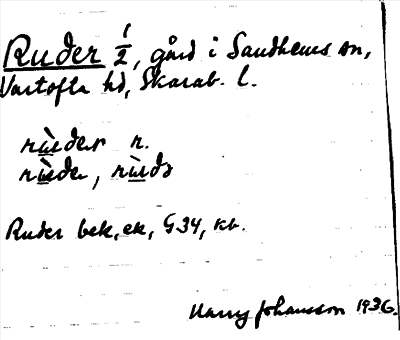 Ruder 1/2, gård i Sandhems sn,
Vartofta hd, Skarab. l.
rùder n.
rùde, rùdə
Ruder bek, ek, G34, kb.
Harry Johansson 1936.